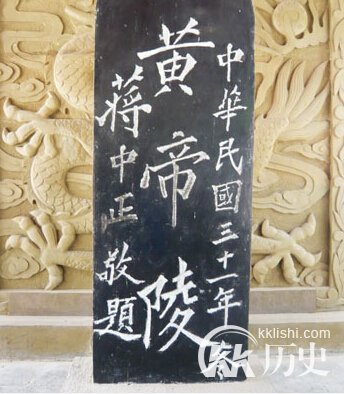 中華民國三十一年
黄帝陵
蔣中正敬題
kklishi.com
KK历史